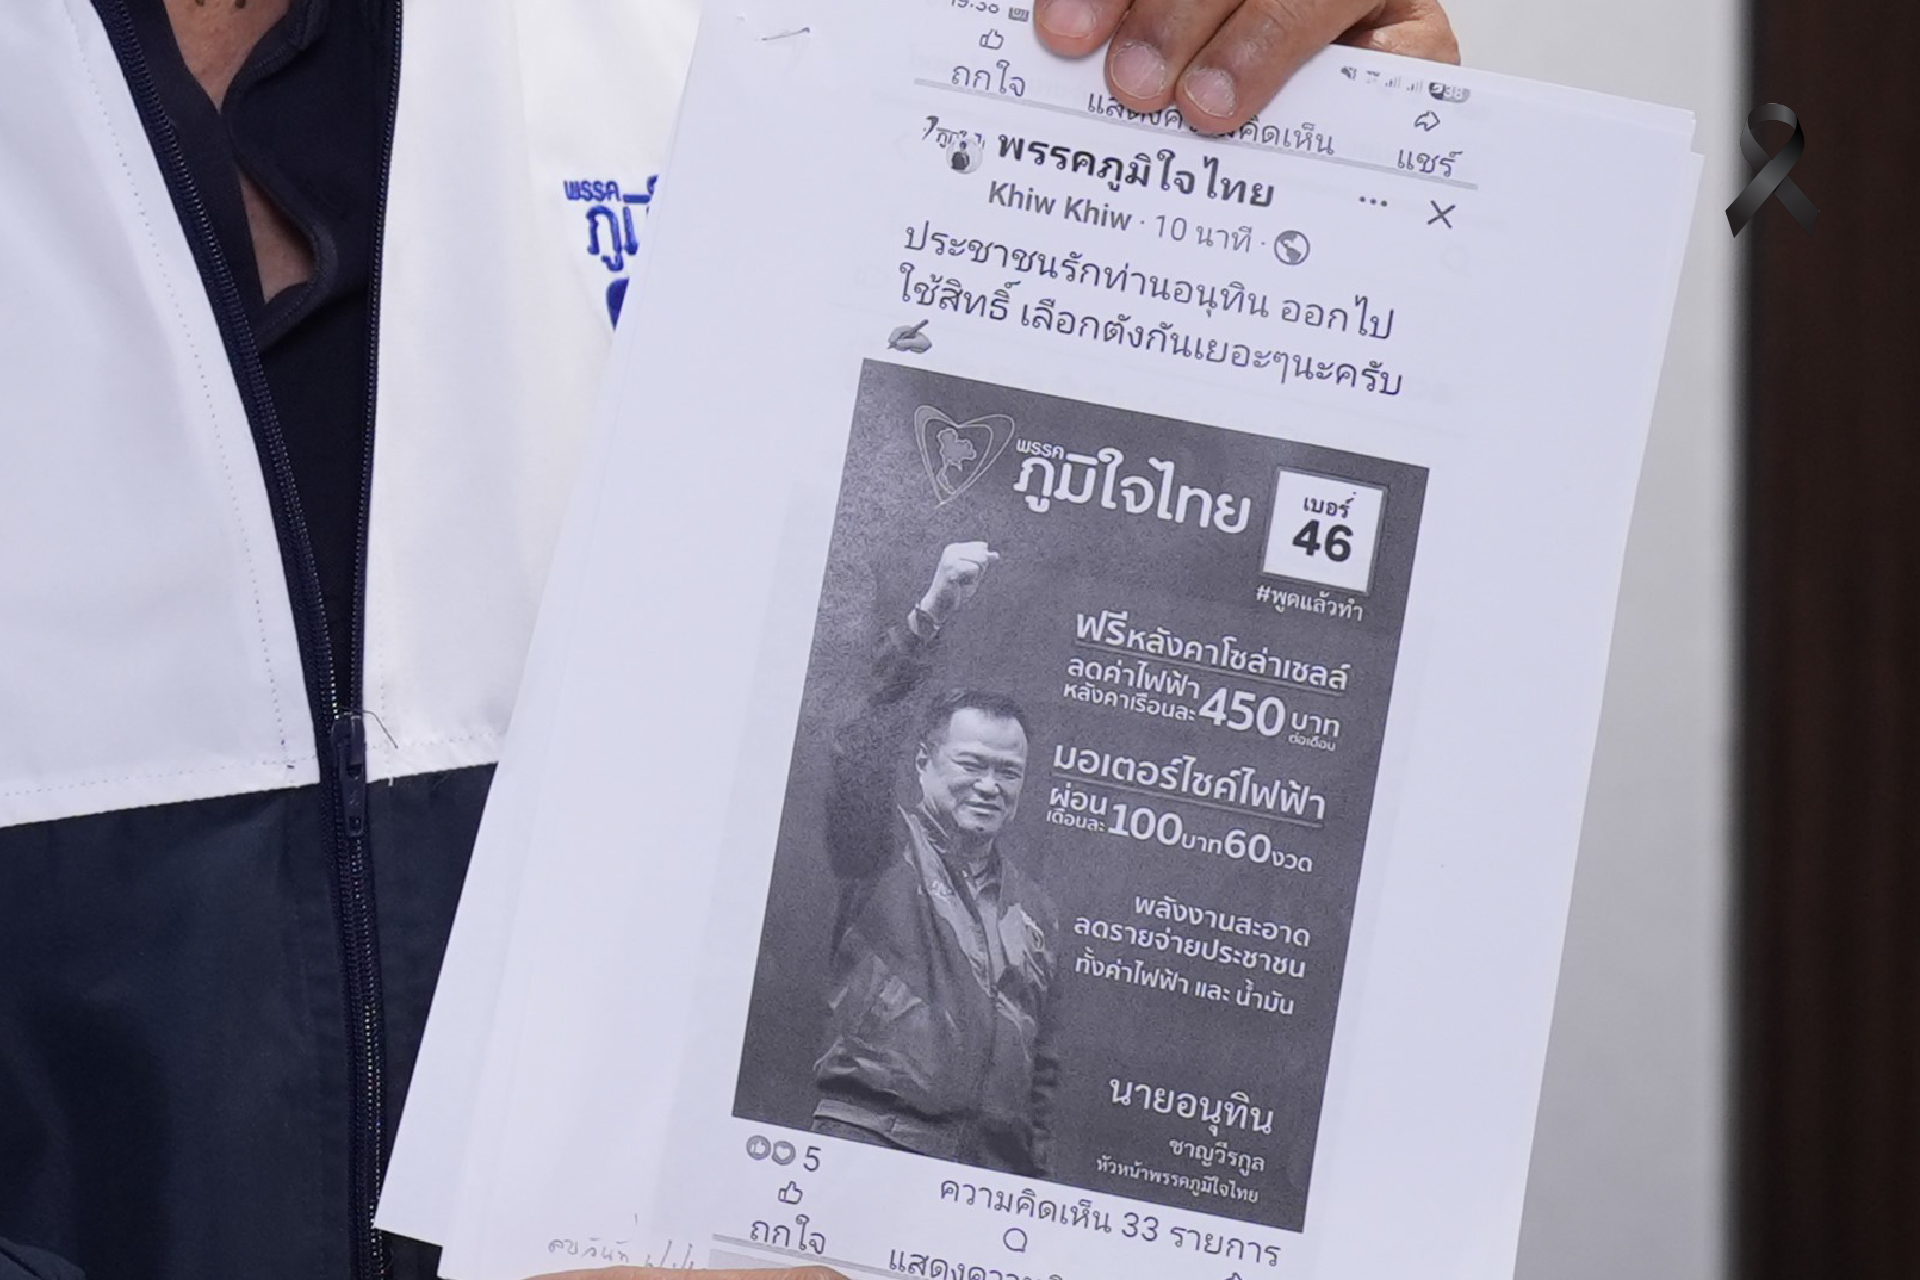 19:38
ถูกใจ
แสดงความคิดเห็น
แชร์
พรรค
ภูมิ
พรรคภูมิใจไทย
Khiw Khiw · 10 นาที ·
ประชาชนรักท่านอนุทิน ออกไป
ใช้สิทธิ์ เลือกตังกันเยอะๆนะครับ
พรรค
ภูมิใจไทย
เบอร์
46
#พูดแล้วทำ
ฟรีหลังคาโซล่าเซลล์
ลดค่าไฟฟ้า
หลังคาเรือนละ 450 บาท
ต่อเดือน
มอเตอร์ไซค์ไฟฟ้า
ผ่อน
เดือนละ 100 บาท 60 งวด
พลังงานสะอาด
ลดรายจ่ายประชาชน
ทั้งค่าไฟฟ้า และ น้ำมัน
นายอนุทิน
ชาญวีรกูล
หัวหน้าพรรคภูมิใจไทย
5
ความคิดเห็น 33 รายการ
ถูกใจ